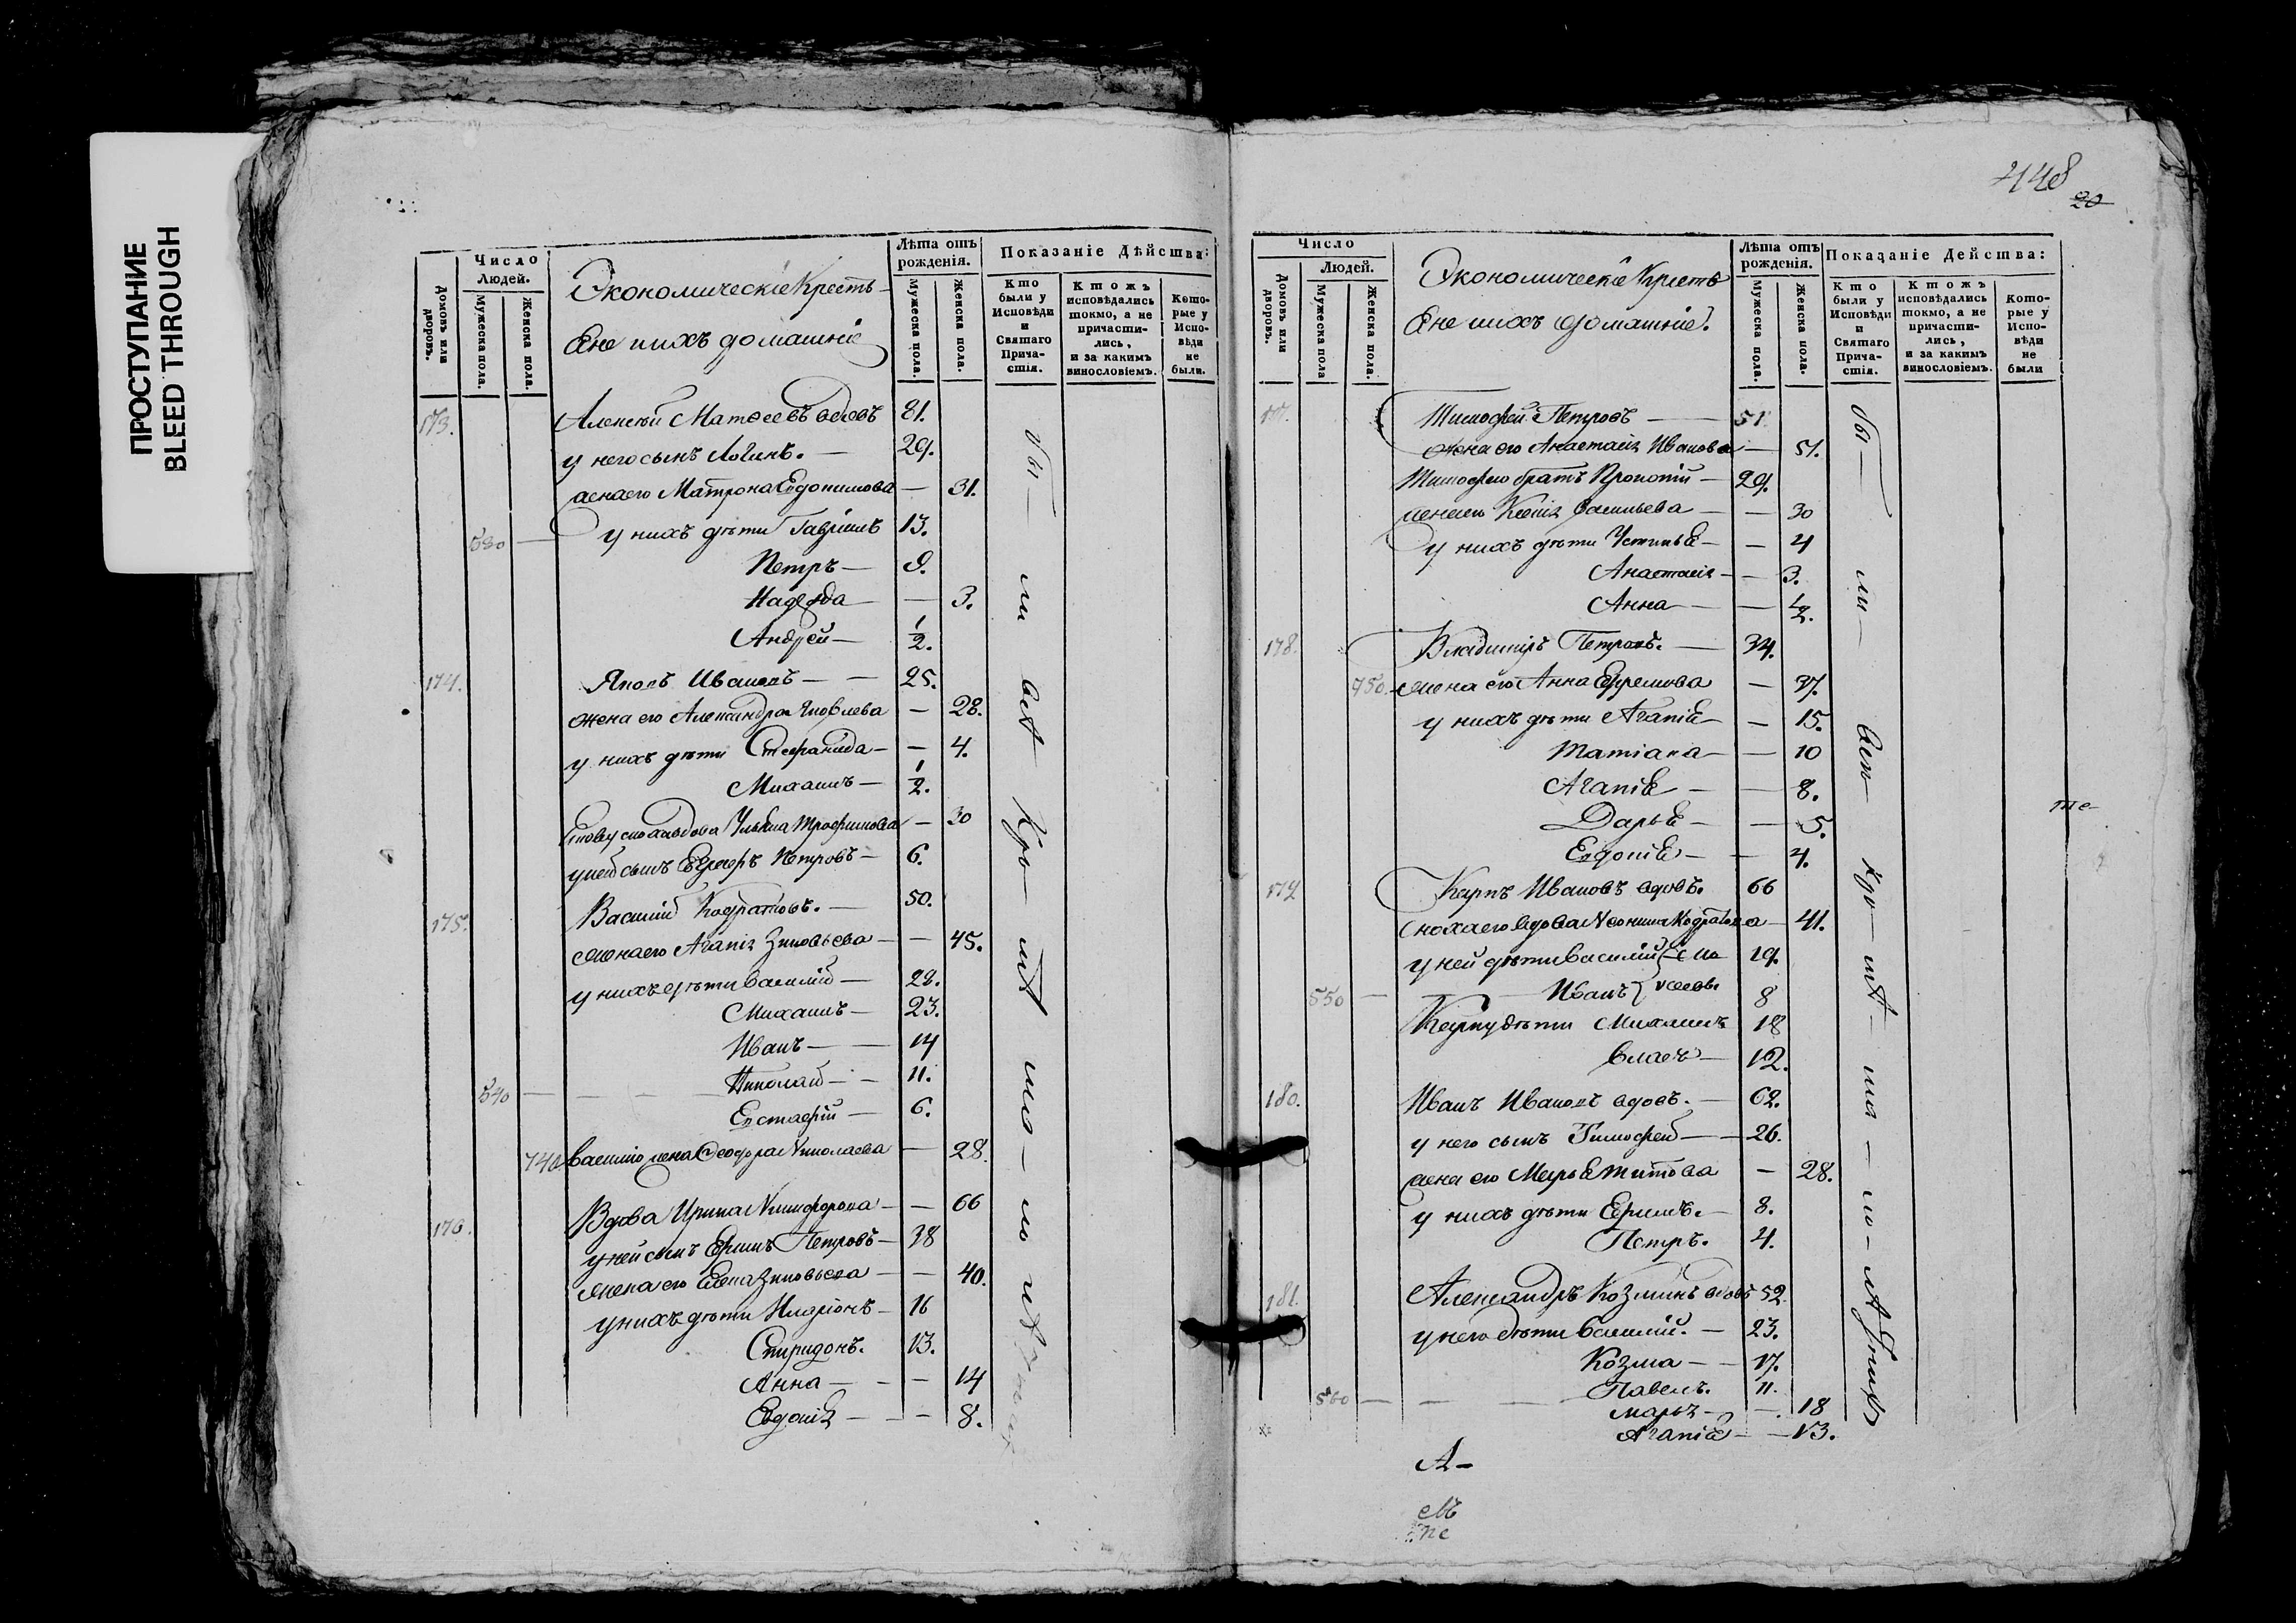 ПРОСТУПАНИЕ
BLEED THROUGH
448
20
Число
Людей.
Домовъ или дворовъ.
Мужеска пола.
Женска пола.
Экономическіе Кресть-
яне и ихъ домашніе
Лѣта отъ рожденія.
Мужеска пола.
Женска пола.
Показаніе Дѣйства:
Кто были у Исповѣди и Святаго Причастія.
Ктожъ исповѣдались токмо, а не причастились, и за какимъ винословіемъ.
Которые у Исповѣди не были.
173. Алексѣй Матѳеевъ вдовъ 81.
у него сынъ Логинъ. — 29.
жена его Матрона Евдокимова — 31.
530 — у нихъ дѣти Гавріилъ 13.
Петръ — 9.
Надежда — 3.
Андрей — 1/2.
174. Яковъ Ивановъ — — 25.
жена его Александра Яковлева — 28.
у нихъ дѣти Стефанида — — 4.
Михаилъ — 1/2.
сноха вдова Ульяна Трофимова — 30
у ней сынъ Петровъ — 6.
175. Василий Кодратовъ. — 50.
жена его Агапія Зиновьева — — 45.
у нихъ дѣти Василій — 28.
Михаилъ — 23.
Иванъ — — 14
540 — — — Николай — — 11.
Евстафій — 6.
740 Василію жена Ѳеодора Николаева — 28.
176. Вдова Ирина Никифорова — — 66
у ней сынъ Ефимъ Петровъ — 38
жена его Елена Зиновьева — — 40.
у нихъ дѣти Иларіонъ — 16
Спиридонъ. 13.
Анна — — — 14
Евдокія — — — 8.
бы — ли всѣ Кро — мѣ
Число
Людей.
Домовъ или дворовъ.
Мужеска пола
Женска пола.
Экономическіе Кресть
яне и ихъ домашніе.
Лѣта отъ рожденія.
Мужеска пола.
Женска пола.
Показаніе Действа:
Кто были у Исповѣди и Святаго Причастія.
Ктожъ исповѣдались токмо, а не причастились, и за какимъ винословіемъ.
Которые у Исповѣди не были
177. Тимофей Петровъ — — 51.
жена его Анастасія Иванова — 51.
Тимофею братъ Прокопій — 29.
жена его Ксенія Васильева — — 30
у нихъ дѣти Устинья — — 4
Анастасія — — 3.
Анна — — 1/2.
178. Владимиръ Петровъ. — 34.
750. жена его Анна Ефремова — 37.
у нихъ дѣти Агапія — — 15.
Татіана — — 10
Агапія — — 8.
Дарья — — 5.
Евдокія — — 4.
179 Карпъ Ивановъ вдовъ. 66
сноха его вдова Кодратова — 41.
у ней дѣти Василій 19.
550 — Иванъ 8
Карпу дѣти Михаилъ 18
Власъ — 12.
180. Иванъ Ивановъ вдовъ. — 62.
у него сынъ Тимофей — — 26.
жена его Марья Титова — 28.
у нихъ дѣти Ефимъ. — 8.
Петръ. 4.
181. Александръ Козминъ вдовъ 52.
у него дѣти Василій. — 23.
Козма — — 17.
560 — — — Павелъ. 11.
Марья — — 18
Агапія — — 13.
бы — ли — всѣ — Кро — мѣ — ма — ло — лѣтныхъ
те
А —